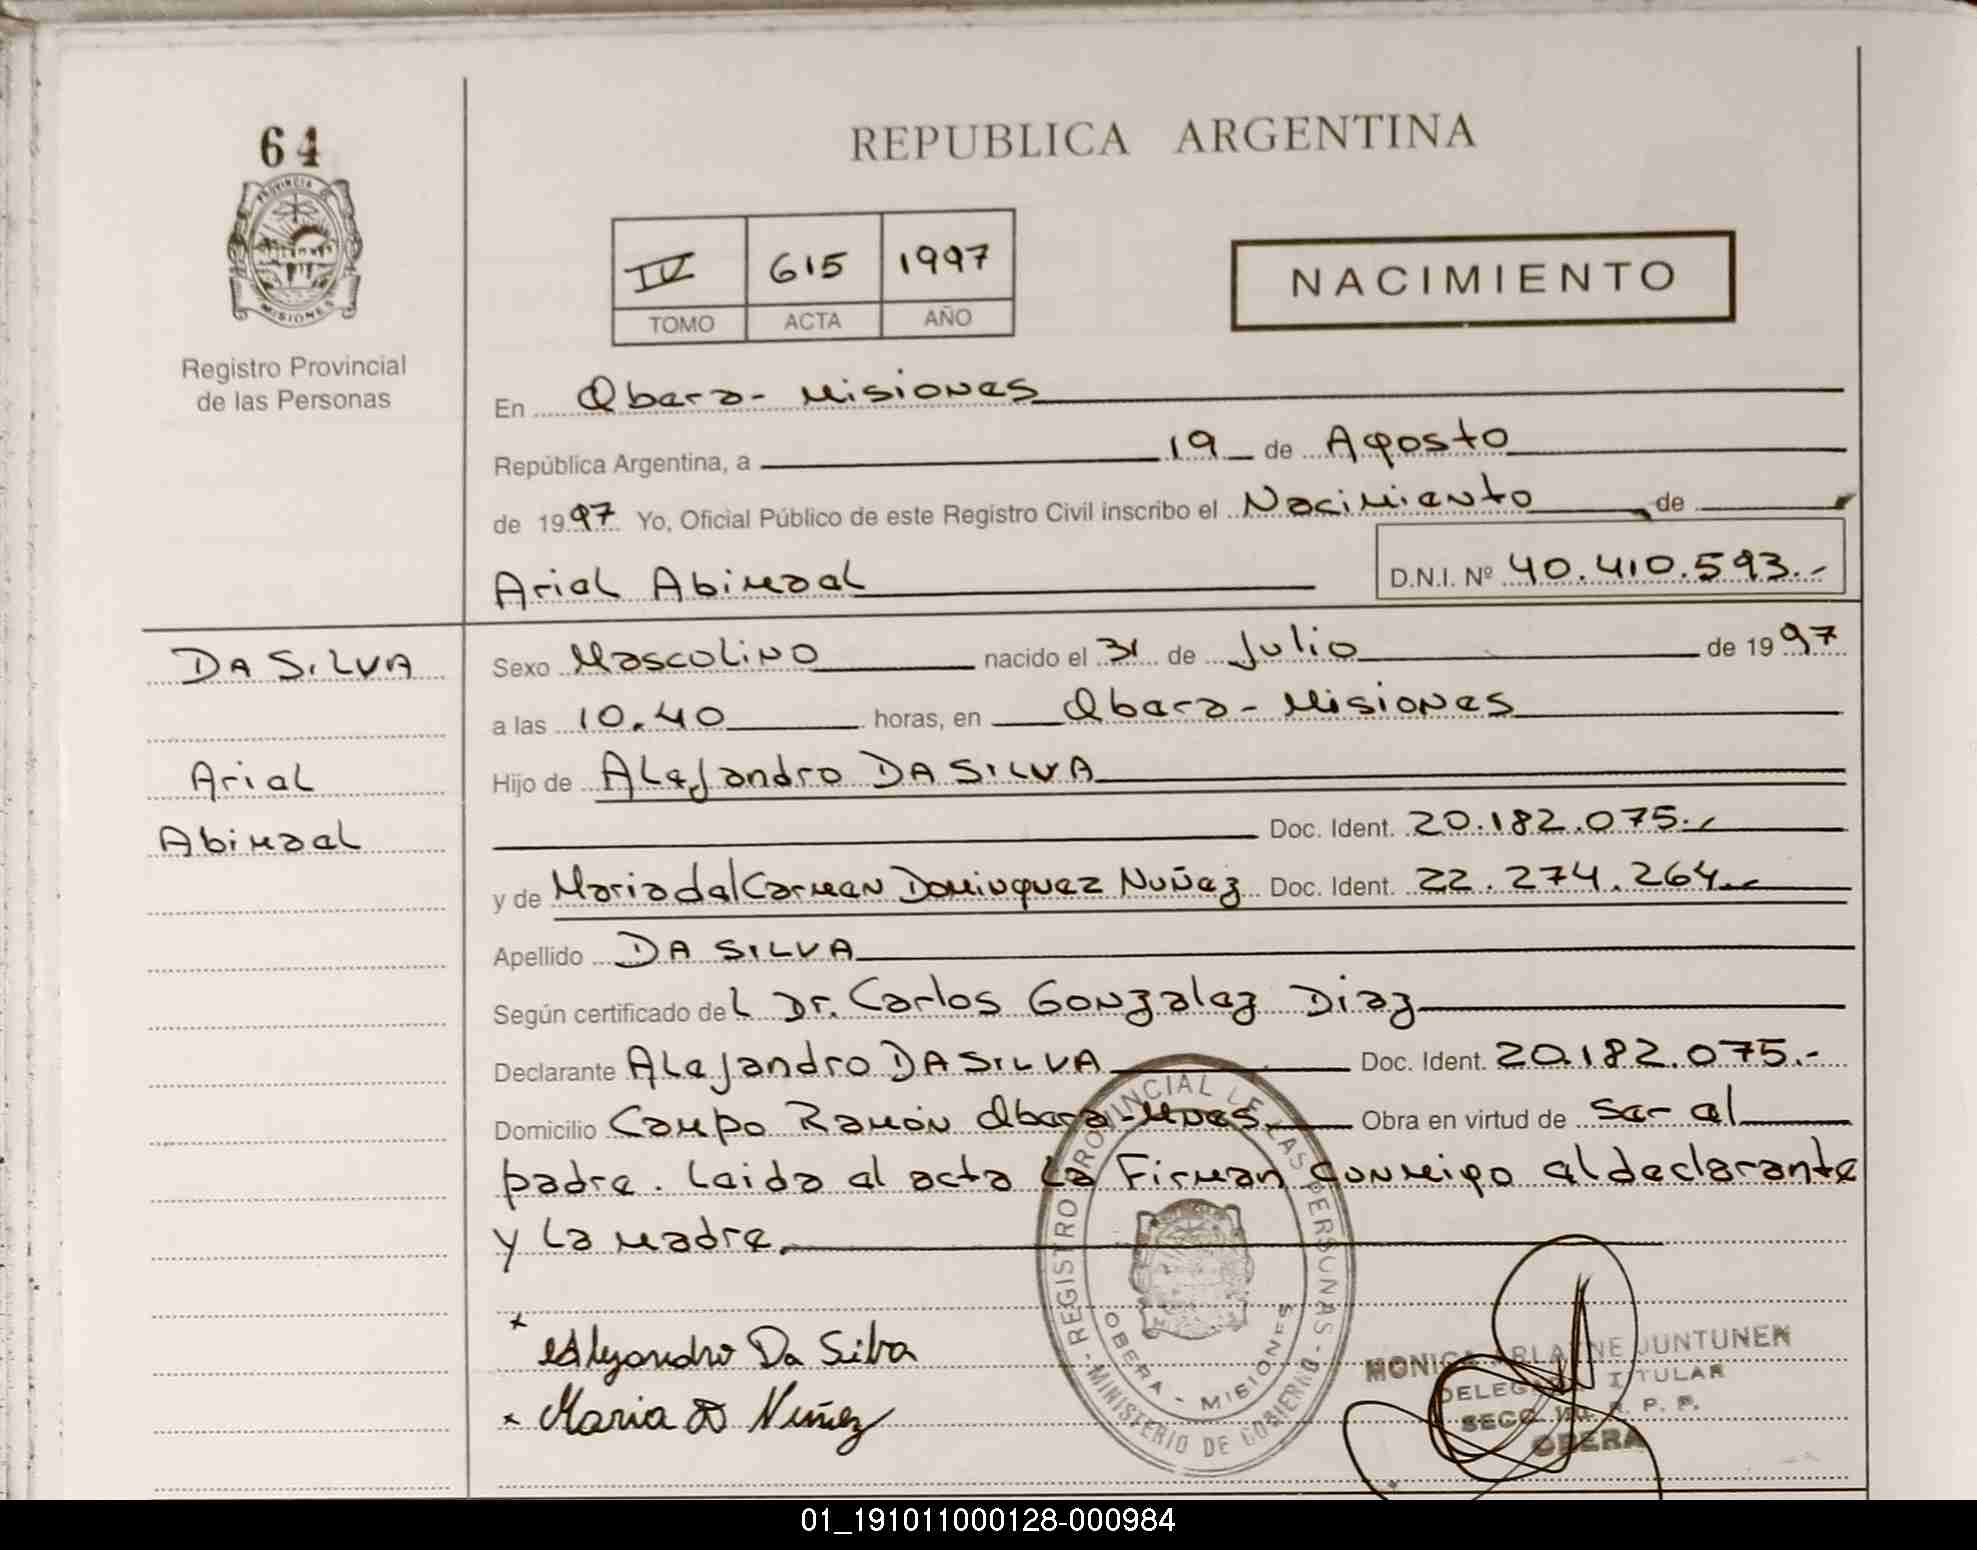 64
PROVINCIA DE
MISIONES
Registro Provincial
de las Personas
REPUBLICA ARGENTINA
IV 615 1997
TOMO ACTA AÑO
NACIMIENTO
En Oberá - Misiones
República Argentina, a 19 de Agosto
de 1997 Yo, Oficial Público de este Registro Civil inscribo el Nacimiento de
Ariel Abimael D.N.I. Nº 40.410.593.-
DA SILVA
Ariel
Abimael
Sexo Masculino nacido el 31 de Julio de 1997
a las 10.40 horas, en Oberá - Misiones
Hijo de Alejandro DA SILVA
Doc. Ident. 20.182.075.-
y de Maria del Carmen Dominguez Nuñez Doc. Ident. 22.274.264.-
Apellido DA SILVA
Según certificado del Dr. Carlos Gonzalez Diaz
Declarante Alejandro DA SILVA Doc. Ident. 20.182.075.-
Domicilio Campo Ramón Oberá-Mnes Obra en virtud de ser el
padre. Leida el acta la Firman conmigo el declarante
y la madre.
Alejandro Da Silva
Maria D Nuñez
REGISTRO PROVINCIAL DE LAS PERSONAS - MINISTERIO DE GOBIERNO -
OBERA - MISIONES
MONICA ARLAINE JUNTUNEN
DELEGADA TITULAR
SECC. R. P. P.
OBERA
01_191011000128-000984